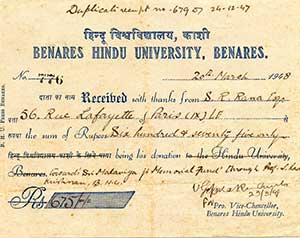 Duplicate receipt no - 679 of 24-12-47
हिन्दू विश्वविद्यालय, काशी
BENARES HINDU UNIVERSITY, BENARES.
No. 776 20th March 1948
दाता का नाम Received with thanks from S. R. Rana Esq.
of 56, Rue Lafayette Paris (IX)
the sum of Rupees Six hundred & seventy five only
being his donation to the Hindu University,
Benares, towards Sri Malaviya ji Memorial Fund through Prof.
B.H.U.
Rs. 675/-/-
Pro. Vice-Chancellor,
Benares Hindu University.
B. H. U. PRESS BENARES